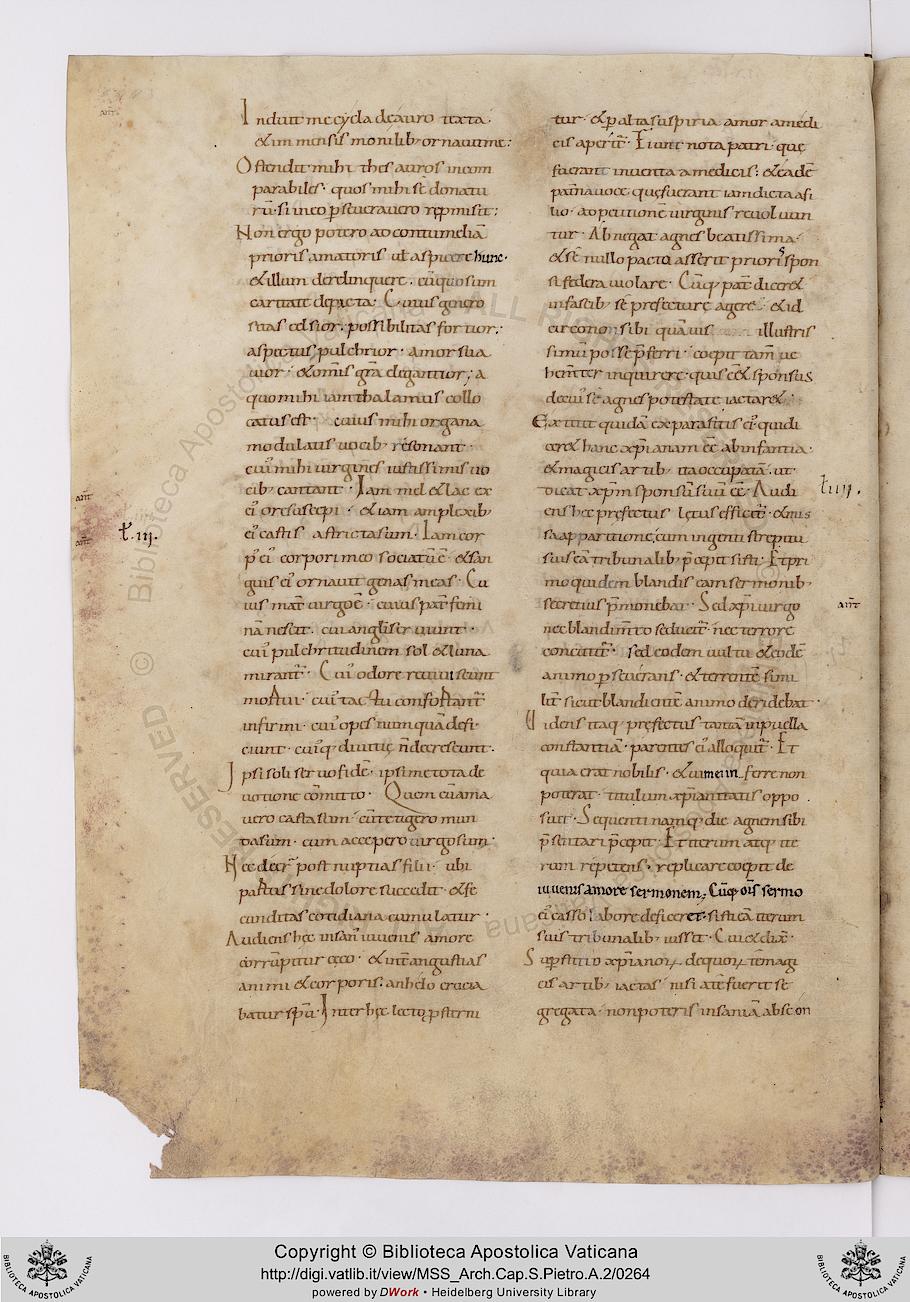 Induit me cyclade auro texta·
& in mensis monilib; ornauit me:
Ostendit mihi thesauros incom
parabiles· quos mihi se donatu
rū· si in eo pseuerauero repmisit;
Non ergo potero ad contumeliā
prioris amatoris uł aspicere hunc·
& illum derelinquere· cū quo sum
caritate depacta· Cuius genero
sitas celsior· possibilitas fortior;
aspectus pulchrior· amor sua
uior· & omnis gra elegantior; a
quo mihi iam thalamus collo
catus est· cuius mihi organa
modulatis uocib; resonant·
cui mihi uirgines iustissimis uo
cib; cantant· Iam mel & lac ex
ei ore suscepi· & iam amplexib;
ei castis astricta sum· Iam cor
p ei corpori meo sociatū ē· & san
guis ei ornauit genas meas· Cu
ius mat uirgo ē· cuius pat femi
nā nescit· cui angli seruiunt·
cui pulchritudinem sol & luna
mirant· Cui odore reuiuiscunt
mortui· cui tactu confortant
infirmi· cui opes numquā defi
ciunt· cui q; diuitię ñ decrescunt·
Ipsi soli seruo fidē· ipsi me tota de
uotione cōmitto· Quem cū ama
uero casta sum· cū tetigero mun
da sum· cum accepero uirgo sum·
Nec deer post nuptias filii· ubi
partus sine dolore succedit· & fe
cunditas cotidiana cumulatur·
Audiens hęc insan iuuenis amore
corrūpitur cęco· & int angustias
animi & corporis· anhelo crucia
batur spū· Inter hęc lecto psterni
t̄. iij.
tur· & p alta suspiria amor a medi
cis aperit· Fiunt nota patri· quę
fuerant inuenta a medicis: & eadē
paterna uoce· quę fuerant iam dicta a fi
lio· ad petitionē uirginis reuoluun
tur· Abnegat agnes beatissima·
& se nullo pacto asserit prioris spon
si federa uiolare· Cūq; pat diceret
in fascib; se prefecturę agere· & id
circo non sibi quamuis illustris
simū posse pferri· coepit tam ue
hemter inquirere· quis eet sponsus
de cui se agnes potestate iactaret·
Extitit quidā ex parasitis ei· qui di
ceret hanc xpianam ee ab infantia·
& magicis artib; ita occupatā· ut
dicat xpm sponsū suū ee· Audi
ens hęc prefectus lętus efficit· & mis
sa apparitione, cum ingenti strepitu
suis eā tribunalib; pcepit sisti· Et pri
mo quidem blandis eam sermonib;
secretius pmonebat· Sed xpi uirgo
nec blandimto seducit· nec terrore
concutit· sed eodem uultu & eodē
animo pseuerans· & terrentē simi
lit sicut blandientē animo deridebat·
Uidens itaq; prefectus tantā in puella
constantiā· parentes ei alloquit· Et
quia erat nobilis· & uim ei inferre non
poterat· titulum xpianitatis oppo
suit· Sequenti namq; die agnen sibi
psentari pcepit· Et iterum atq; ite
rum repetens· replicare coepit de
iuuenis amore sermonem; Cūq; ois sermo
ei casso labore deficeret· sisti eā iterum
suis tribunalib; iussit· Cui & dix·
Supstitio xpianor· de quor te magi
cis artib; iactas· nisi a te fuerit se
gregata· non poteris insaniā abs con
t̄ iiij.
Copyright © Biblioteca Apostolica Vaticana
http://digi.vatlib.it/view/MSS_Arch.Cap.S.Pietro.A.2/0264
powered by DWork • Heidelberg University Library